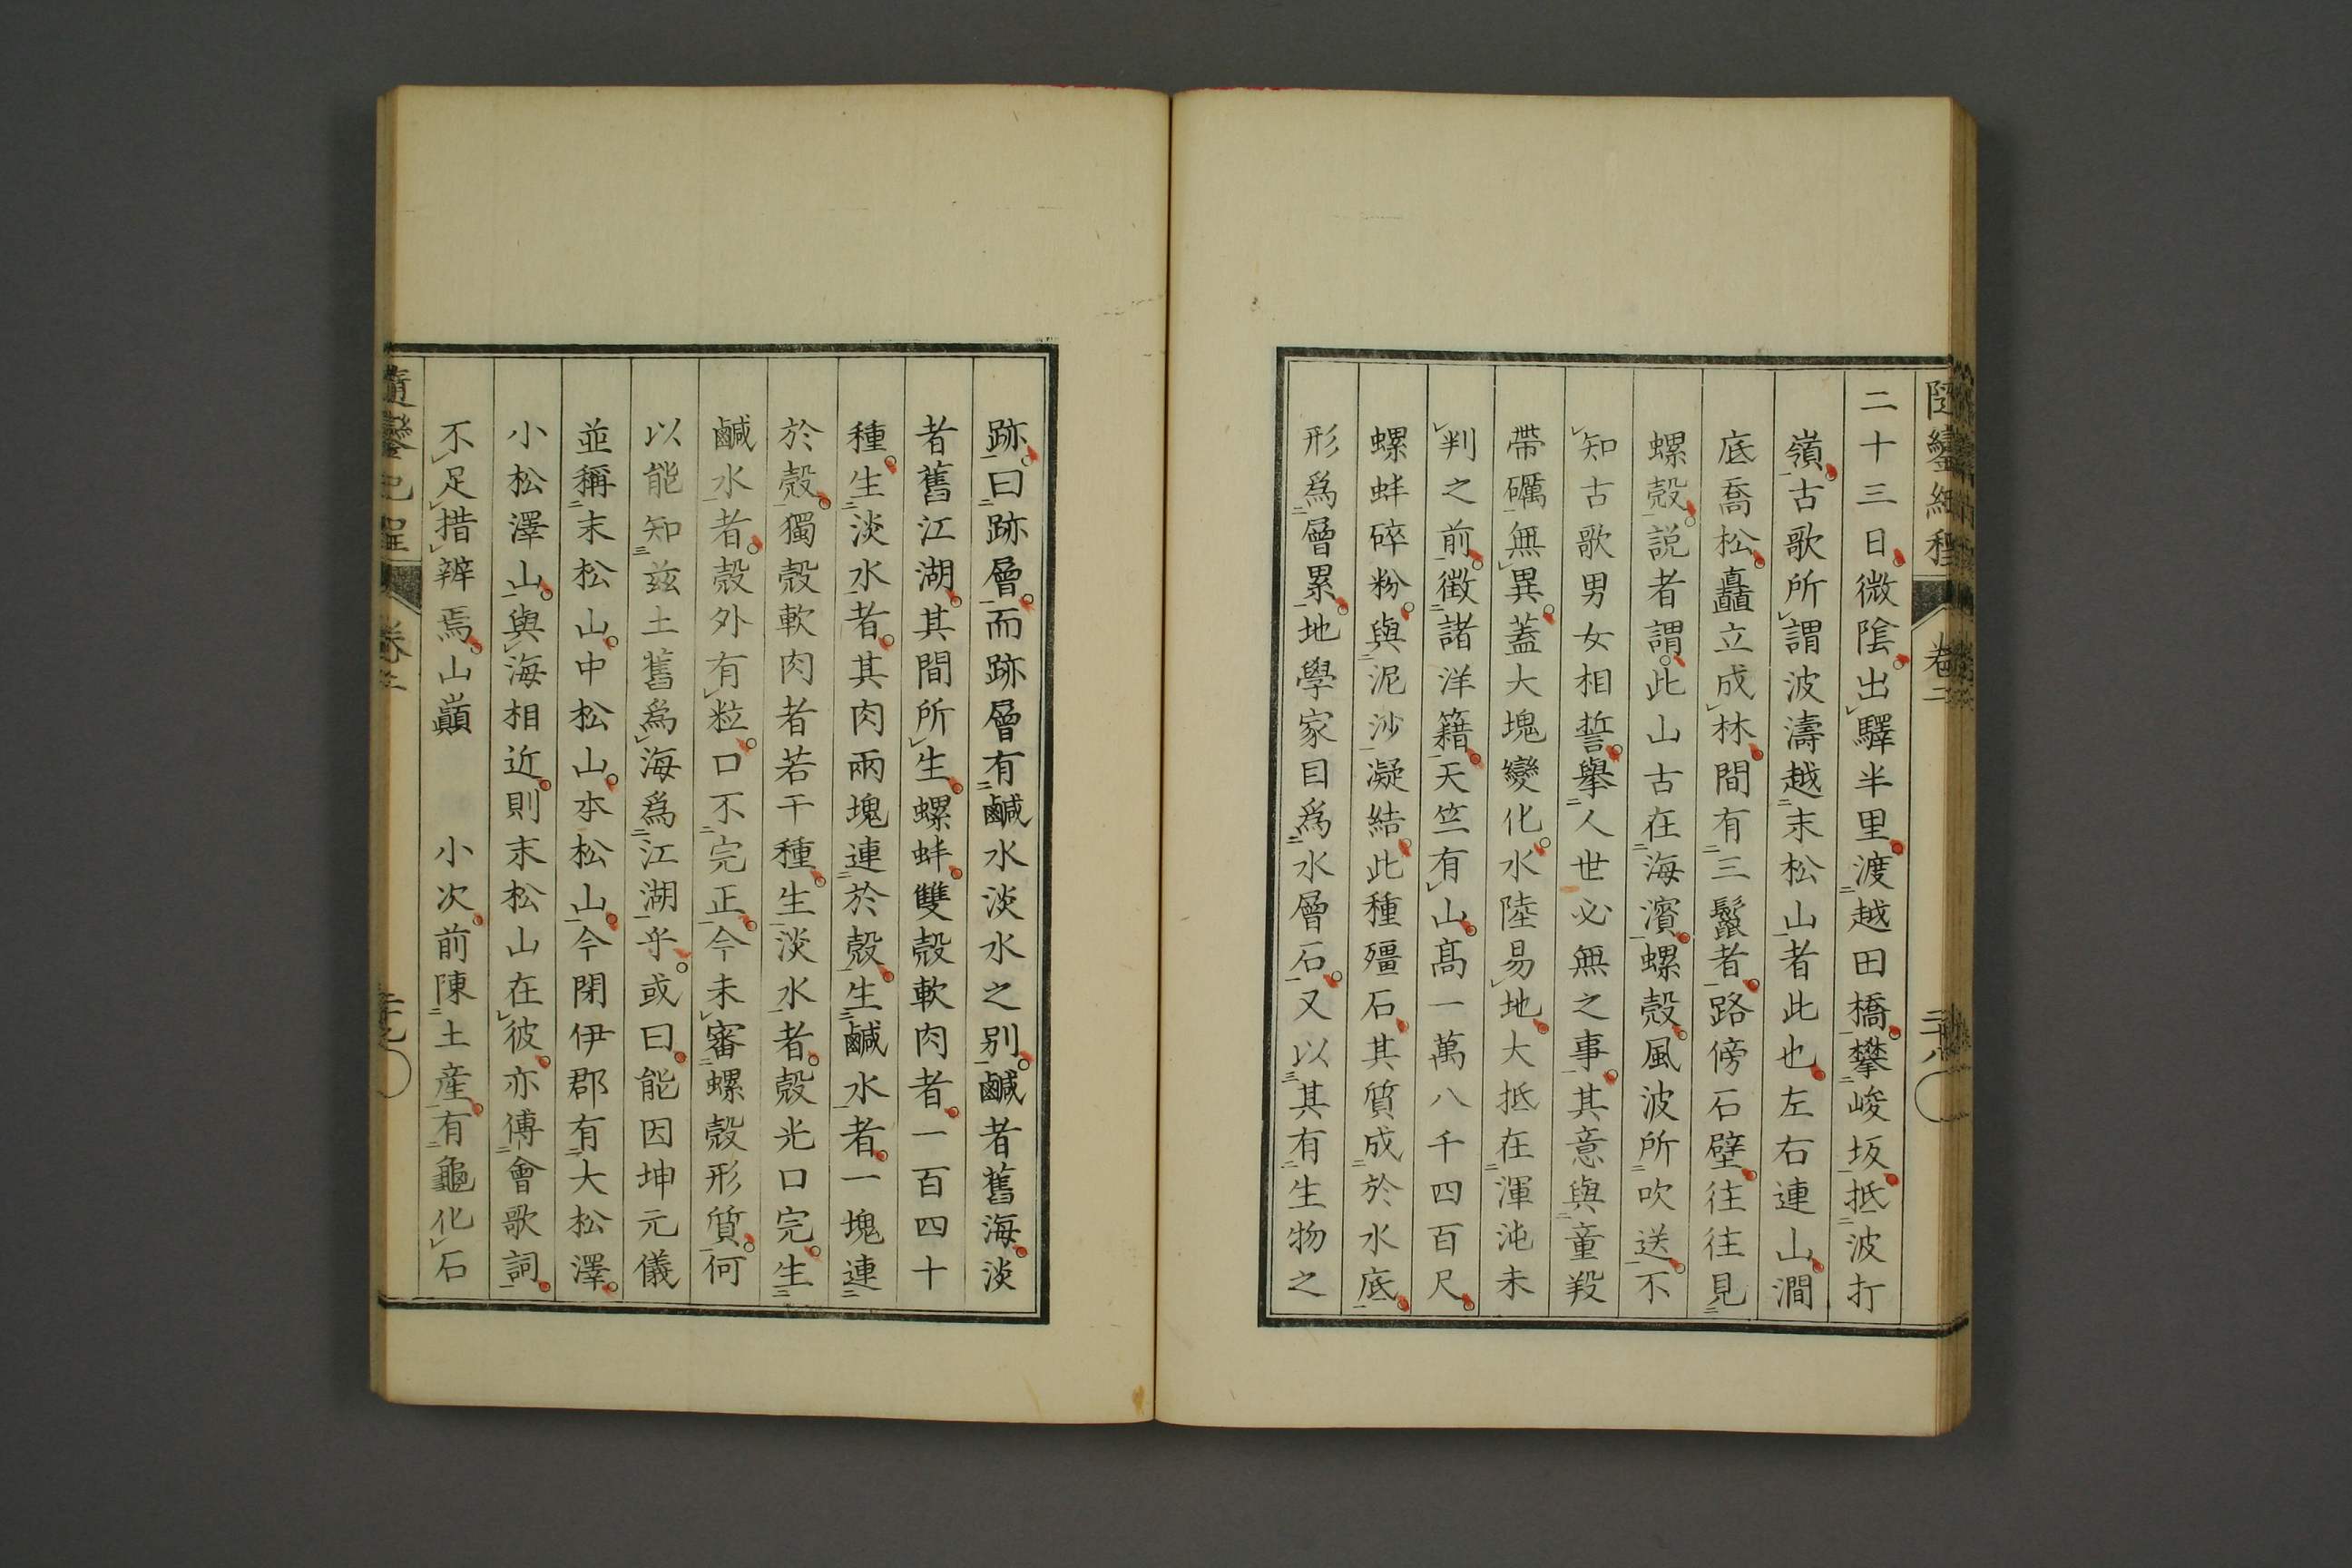 二十三日微陰出驛半里渡越田橋攀峻坂抵波打
嶺古歌所謂波濤越末松山者此也左右連山澗
底喬松矗立成林間有三鬣者路傍石壁往往見
螺殼説者謂此山古在海濱螺殼風波所吹送不
知古歌男女相誓擧人世必無之事其意與童羖
帶礪無異蓋大塊變化水陸易地大抵在渾沌未
判之前徵諸洋籍天竺有山高一萬八千四百尺
螺蚌碎粉與泥沙凝結此種殭石其質成於水底
形爲層累地學家目爲水層石又以其有生物之
跡曰跡層而跡層有鹹水淡水之別鹹者舊海淡
者舊江湖其間所生螺蚌雙殼軟肉者一百四十
種生淡水者其肉兩塊連於殼生鹹水者一塊連
於殼獨殼軟肉者若干種生淡水者殼光口完生
鹹水者殼外有粒口不完正今未審螺殼形質何
以能知茲土舊爲海爲江湖乎或曰能因坤元儀
並稱末松山中松山本松山今閉伊郡有大松澤
小松澤山與海相近則末松山在彼亦傅會歌詞
不足措辨焉山巓　小次前陳土産有龜化石
隨鑾紀程　卷二